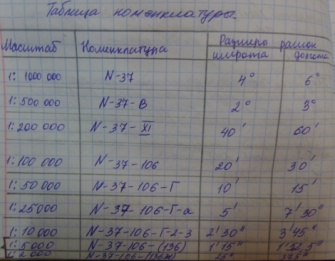 Таблица номенклатуро.
Масштаб Номенклатура Размеро рамок
широта долгота
1: 1000 000 N-37 4° 6°
1: 500 000 N-37-В 2° 3°
1: 200 000 N-37-XI 40' 60'
1: 100 000 N-37-106 20' 30'
1: 50 000 N-37-106-Г 10' 15'
1: 25000 N-37-106-Г-а 5' 7' 30"
1: 10 000 N-37-106-Г-2-3 2' 30" 3' 45"
1: 5000 N-37-106-(136) 1' 15"
1: 2000